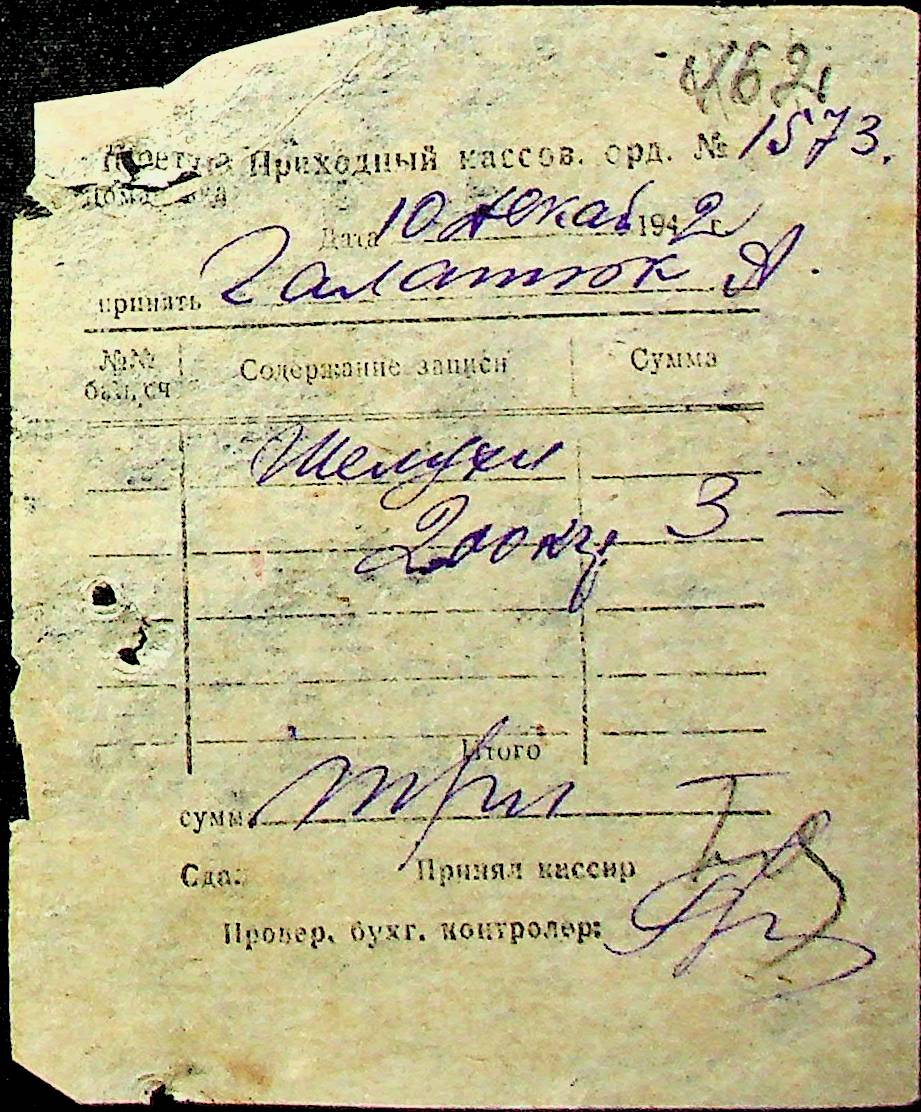 162
Приходный кассов. орд. № 1573.
Дата 10 декаб 1942 г.
принять Галатюк А.
№№ бал. сч Содержание записи Сумма
Шелухи
200 кг, 3 —
Итого
сумма три
Сдал Принял кассир
Провер. бухг. контролер: